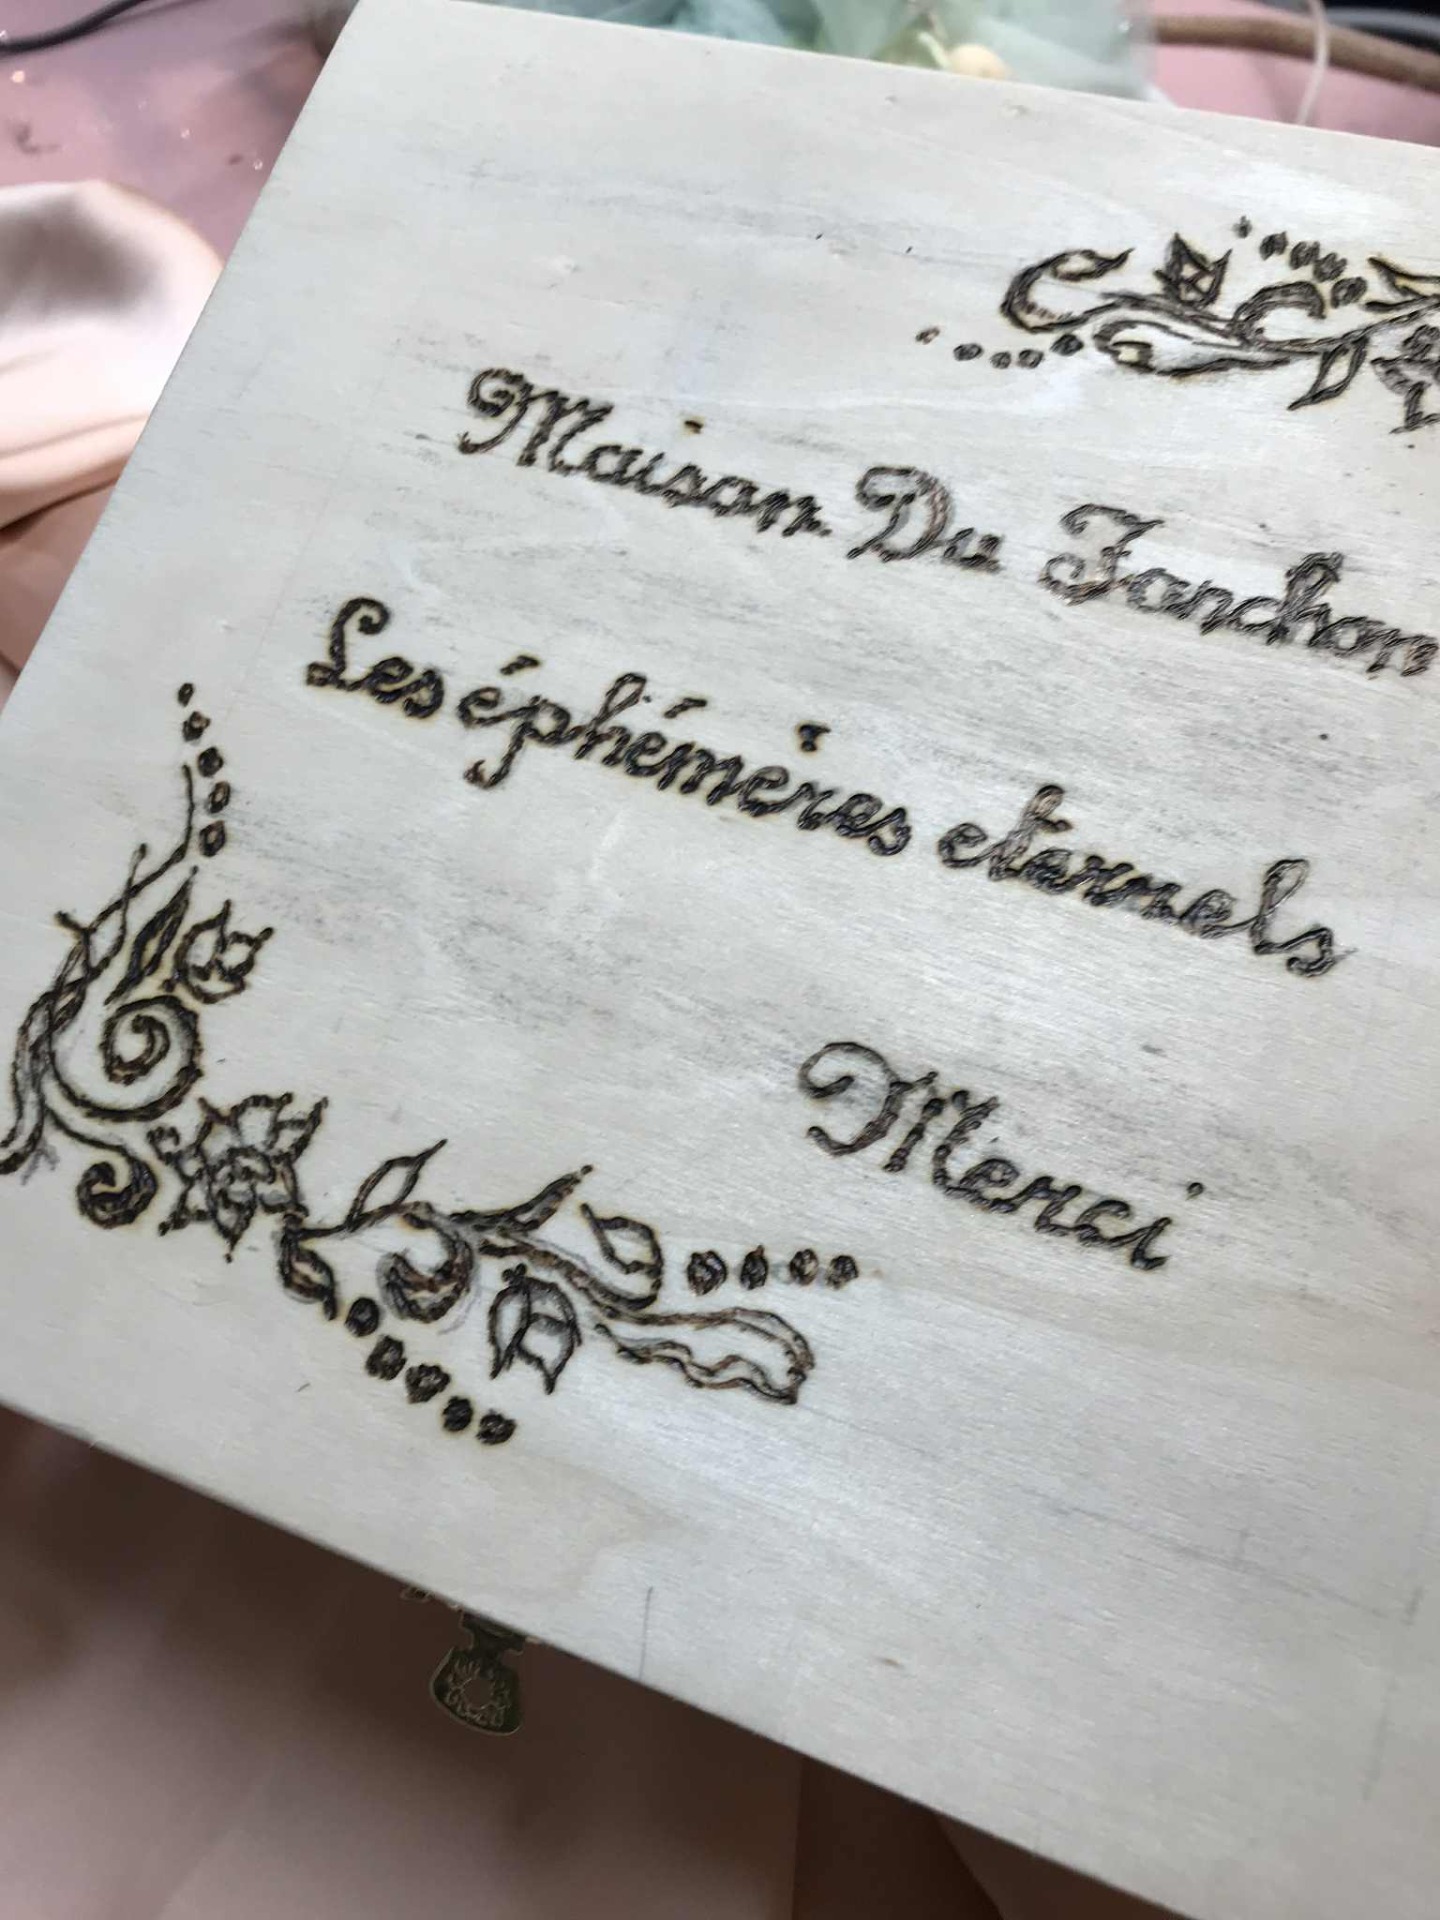 Maison Du Fanchon
Les éphémères eternels
Merci